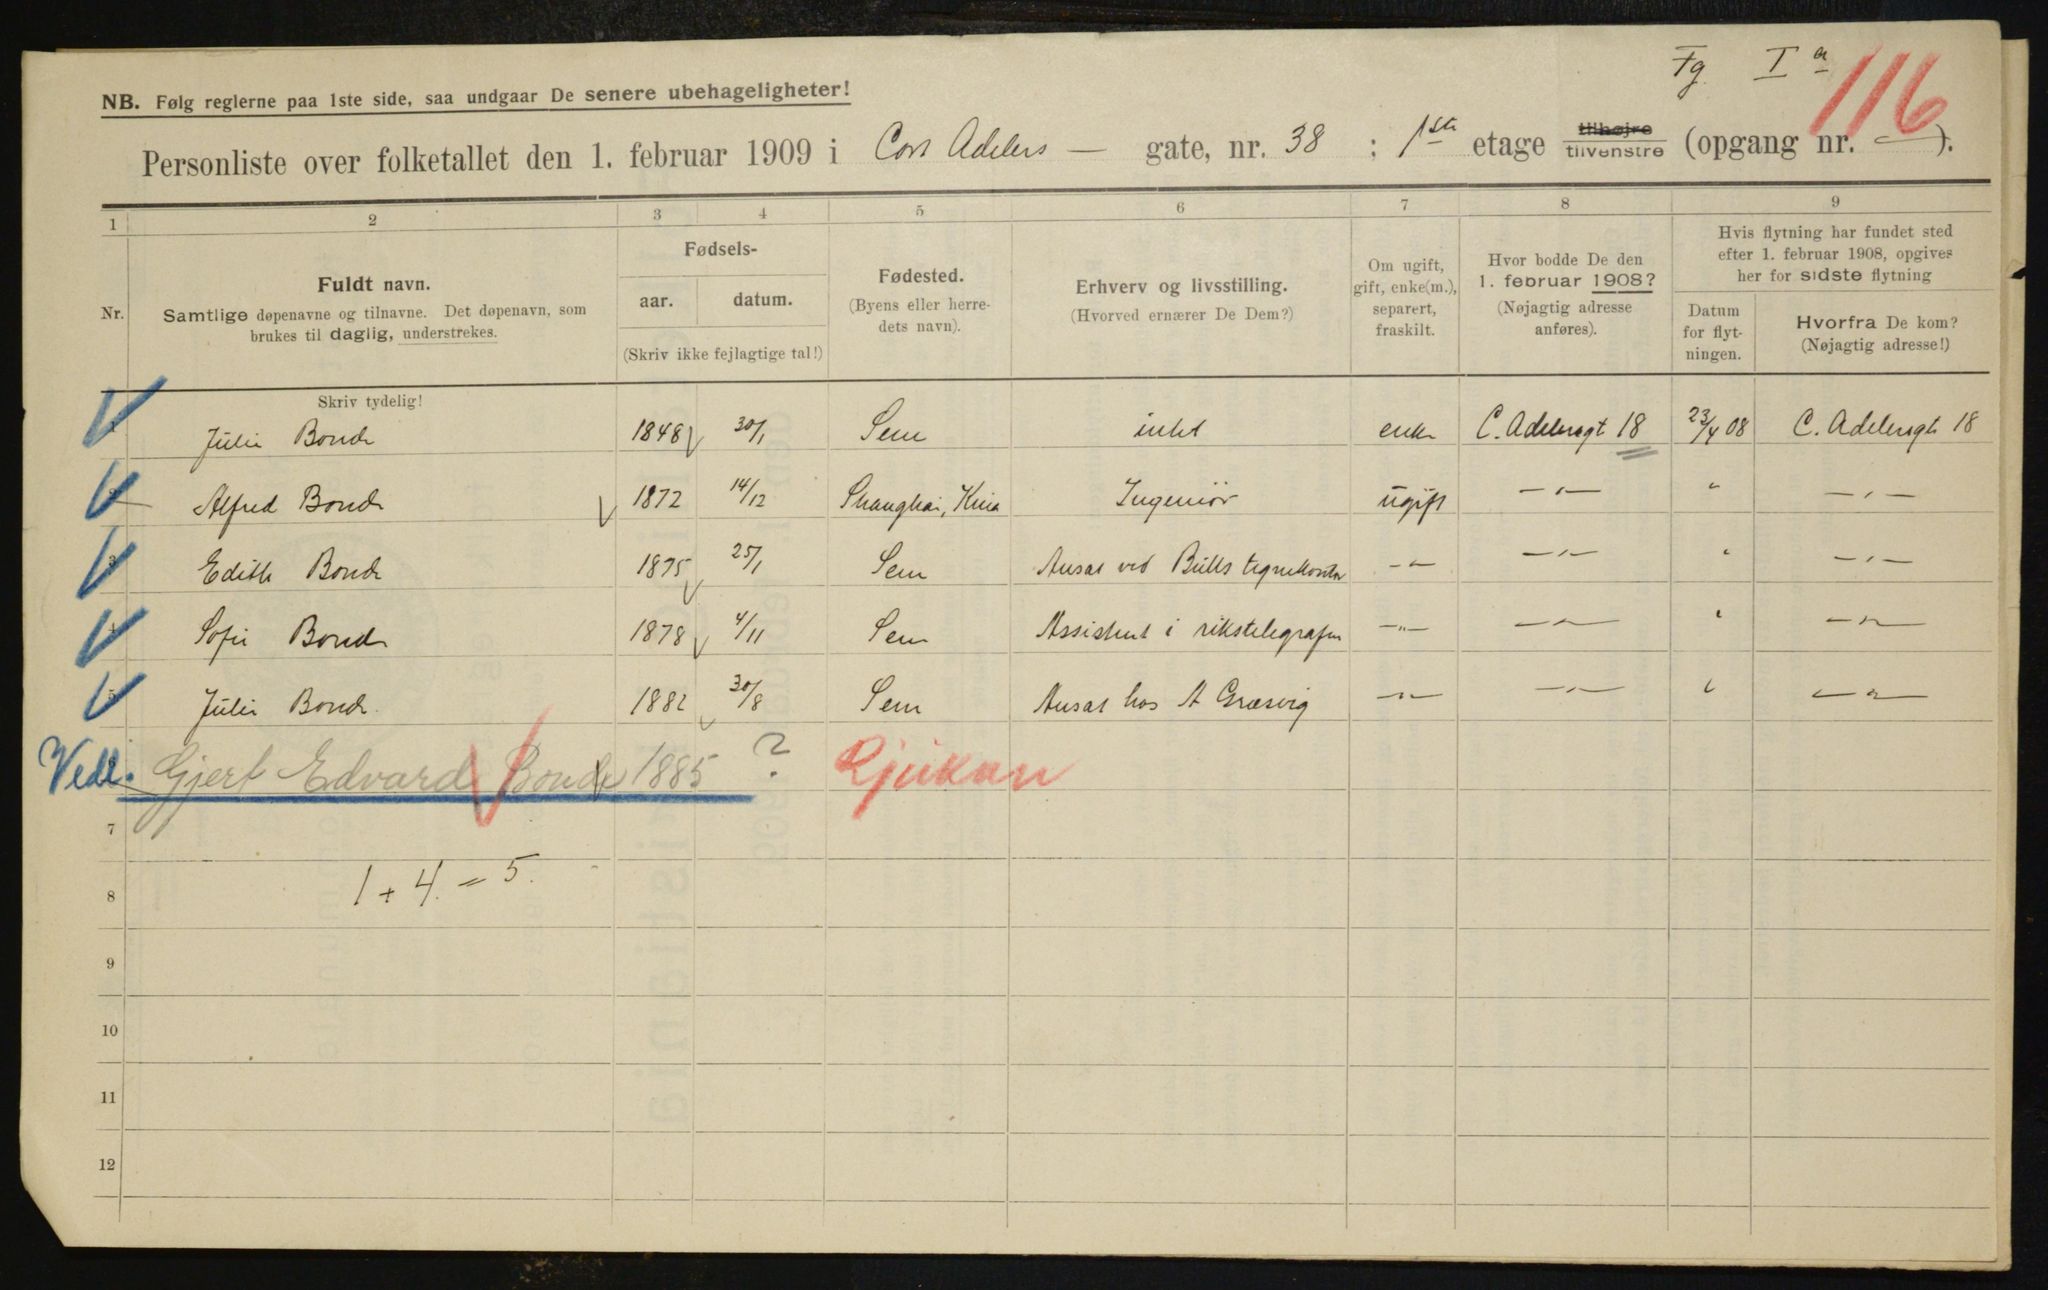 Fg. I a
116
NB. Følg reglerne paa 1ste side, saa undgaar De senere ubehageligheter!
Personliste over folketallet den 1. februar 1909 i Cort Adelers — gate, nr. 38 ; 1ste etage tilhøjre tilvenstre (opgang nr. — ).
1 2 3 4 5 6 7 8 9
Nr.
Fuldt navn.
Samtlige døpenavne og tilnavne. Det døpenavn, som
brukes til daglig, understrekes.
Fødsels-
aar. datum.
(Skriv ikke fejlagtige tal!)
Fødested.
(Byens eller herre-
dets navn).
Erhverv og livsstilling.
(Hvorved ernærer De Dem?)
Om ugift,
gift, enke(m.),
separert,
fraskilt.
Hvor bodde De den
1. februar 1908?
(Nøjagtig adresse
anføres).
Hvis flytning har fundet sted
efter 1. februar 1908, opgives
her for sidste flytning
Datum
for flyt-
ningen.
Hvorfra De kom?
(Nøjagtig adresse!)
Skriv tydelig!
1 Julie Bonde 1848 30/1 Sem intet enke C. Adelersgt 18 23/4 08 C. Adelersgt 18
2 Alfred Bonde 1872 14/12 Shanghai, Kina Ingeniør ugift — " — " — " —
3 Edith Bonde 1875 25/1 Sem Ansat ved Bulls tegnekontor — " — — " — " — " —
4 Sofie Bonde 1878 4/11 Sem Assistent i rikstelegrafen — " — — " — " — " —
5 Julie Bonde 1882 30/8 Sem Ansat hos A Græsvig — " — — " — " — " —
Vedl. Gjert Edvard Bonde 1885 ? Rjukan
7
8 1 + 4. = 5.
9
10
11
12